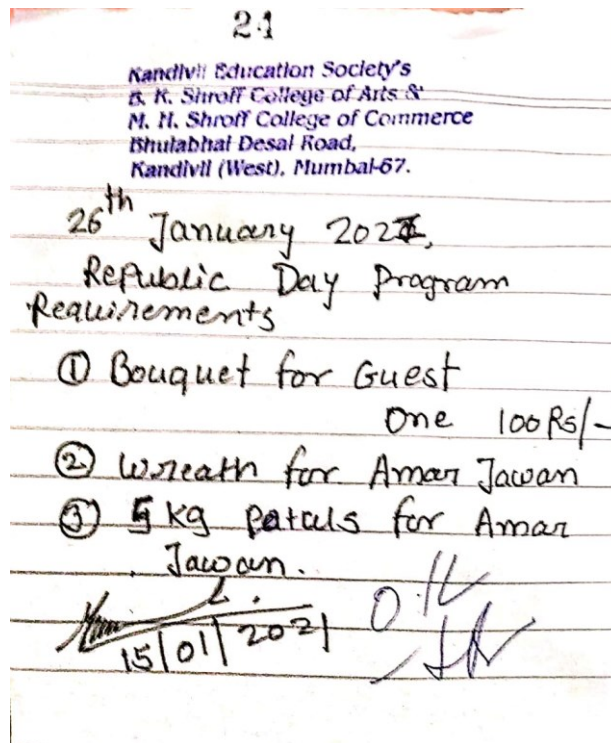 24
Kandivli Education Society's
B. K. Shroff College of Arts &
M. H. Shroff College of Commerce
Bhulabhai Desai Road,
Kandivli (West), Mumbai-67.
26th January 2021,
Republic Day Program
Requirements
① Bouquet for Guest
One 100 Rs/-
② Wreath for Amar Jawan
③ 5 kg Petals for Amar
Jawan.
15/01/2021
O.K